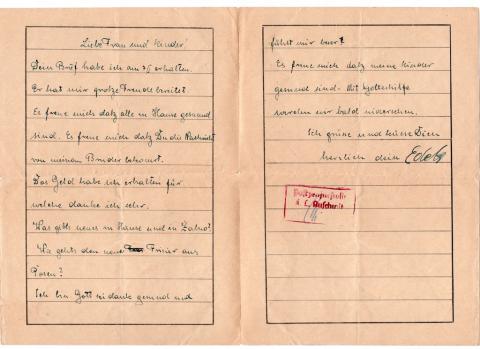 Liebe Frau und Kinder!
Dein Brief habe ich am 7/5 erhalten.
Er hat mir grotze Freude breitet.
Es freue mich datz alle in Hause gesund
sind. Es freue mich datz Du die Nachricht
von meinem Bruder bekomst.
Das Geld habe ich erhalten für
welche danke ich sehr.
Was gibts neues in Hause und in
Wa gehts den neue Frisier aus
Posen?
Ich bin Gott sei dank gesund und
fühlt mir
Es freue mich datz meine Kinder
gesund sind. Mit Gotteshilfe
werden wir bald wiedersehen.
Ich grüsse und küsse Dich
herzlich dein
Postzensurstelle
K. L. Auschwitz